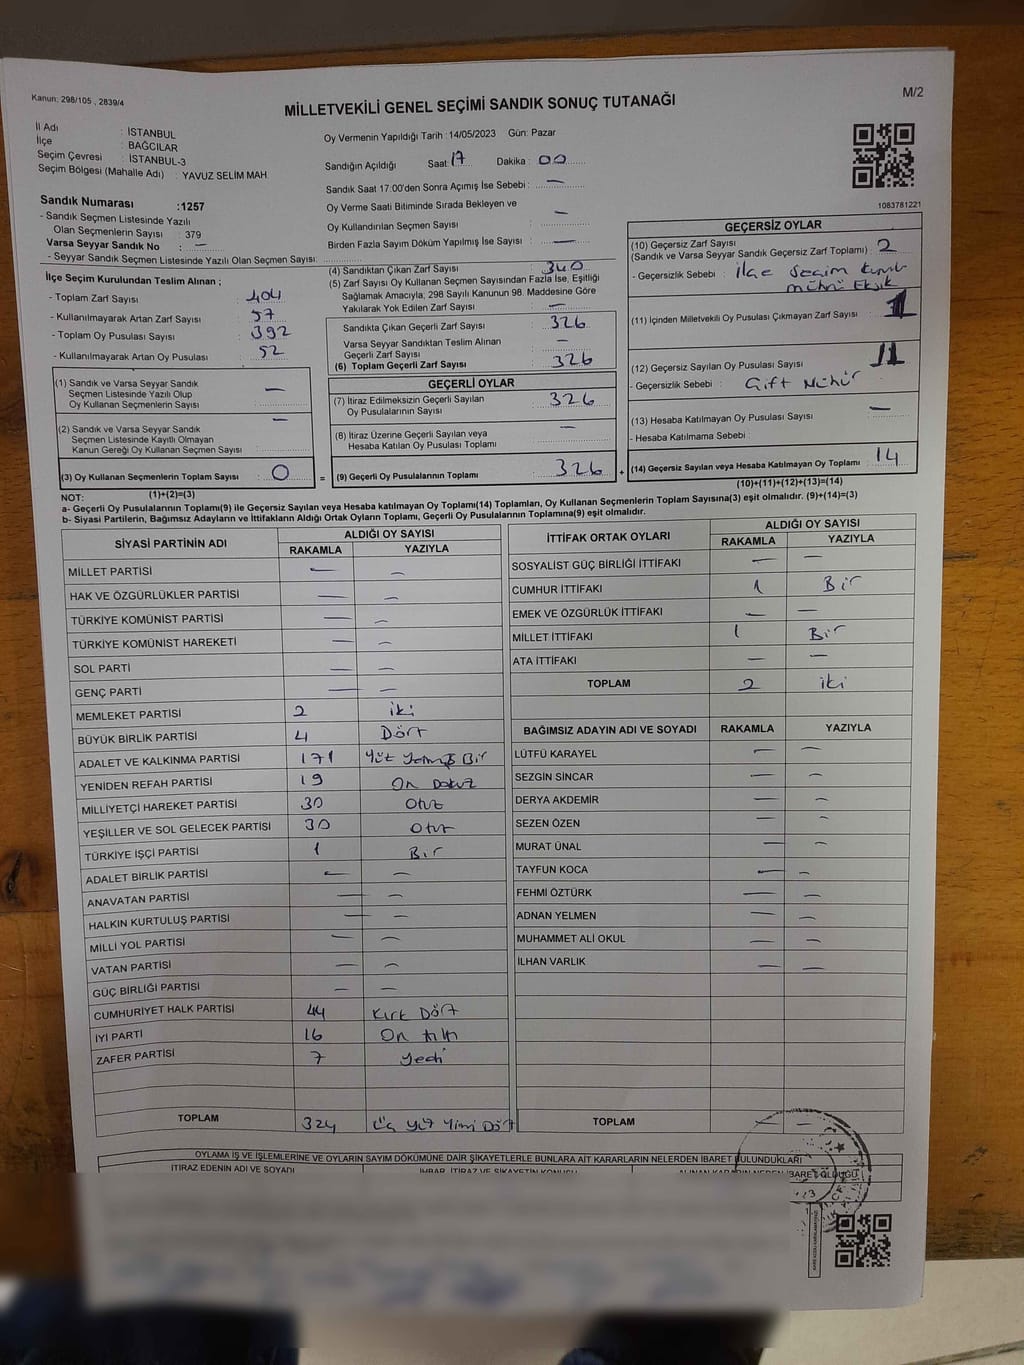 Kanun: 298/105 , 2839/4
MİLLETVEKİLİ GENEL SEÇİMİ SANDIK SONUÇ TUTANAĞI
M/2
İl Adı : İSTANBUL
İlçe : BAĞCILAR
Seçim Çevresi : İSTANBUL-3
Seçim Bölgesi (Mahalle Adı) : YAVUZ SELİM MAH.
Oy Vermenin Yapıldığı Tarih :14/05/2023 Gün: Pazar
Sandığın Açıldığı Saat: 17 Dakika : 00
Sandık Saat 17:00'den Sonra Açılmış İse Sebebi : —
Oy Verme Saati Bitiminde Sırada Bekleyen ve
Oy Kullandırılan Seçmen Sayısı : —
Birden Fazla Sayım Döküm Yapılmış İse Sayısı : —
1083781221
Sandık Numarası :1257
- Sandık Seçmen Listesinde Yazılı
Olan Seçmenlerin Sayısı : 379
Varsa Seyyar Sandık No : —
- Seyyar Sandık Seçmen Listesinde Yazılı Olan Seçmen Sayısı:
İlçe Seçim Kurulundan Teslim Alınan ;
- Toplam Zarf Sayısı : 404
- Kullanılmayarak Artan Zarf Sayısı : 57
- Toplam Oy Pusulası : 392
- Kullanılmayarak Artan Oy Pusulası : 52
(1) Sandık ve Varsa Seyyar Sandık
Seçmen Listesinde Yazılı Olup
Oy Kullanan Seçmenlerin Sayısı : —
(2) Sandık ve Varsa Seyyar Sandık
Seçmen Listesinde Kayıtlı Olmayan
Kanun Gereği Oy Kullanan Seçmen Sayısı : —
(3) Oy Kullanan Seçmenlerin Toplam Sayısı : 0
(1)+(2)=(3)
(4) Sandıktan Çıkan Zarf Sayısı : 340
(5) Zarf Sayısı Oy Kullanan Seçmen Sayısından Fazla İse, Eşitliği
Sağlamak Amacıyla, 298 Sayılı Kanunun 98. Maddesine Göre
Yakılarak Yok Edilen Zarf Sayısı : —
Sandıkta Çıkan Geçerli Zarf Sayısı : 326
Varsa Seyyar Sandıktan Teslim Alınan
Geçerli Zarf Sayısı : —
(6) Toplam Geçerli Zarf Sayısı : 326
GEÇERLİ OYLAR
(7) İtiraz Edilmeksizin Geçerli Sayılan
Oy Pusulalarının Sayısı : 326
(8) İtiraz Üzerine Geçerli Sayılan veya
Hesaba Katılan Oy Pusulası Toplamı : —
= (9) Geçerli Oy Pusulalarının Toplamı : 326 +
GEÇERSİZ OYLAR
(10) Geçersiz Zarf Sayısı
(Sandık ve Varsa Seyyar Sandık Geçersiz Zarf Toplamı) : 2
- Geçersizlik Sebebi : ilçe seçim kurulu
mührü Eksik
(11) İçinden Milletvekili Oy Pusulası Çıkmayan Zarf Sayısı : 1
(12) Geçersiz Sayılan Oy Pusulası Sayısı : 11
- Geçersizlik Sebebi : Çift Mühür
(13) Hesaba Katılmayan Oy Pusulası Sayısı : —
- Hesaba Katılmama Sebebi :
(14) Geçersiz Sayılan veya Hesaba Katılmayan Oy Toplamı : 14
(10)+(11)+(12)+(13)=(14)
NOT:
a- Geçerli Oy Pusulalarının Toplamı(9) ile Geçersiz Sayılan veya Hesaba Katılmayan Oy Toplamı(14) Toplamları, Oy Kullanan Seçmenlerin Toplam Sayısına(3) eşit olmalıdır. (9)+(14)=(3)
b- Siyasi Partilerin, Bağımsız Adayların ve İttifakların Aldığı Ortak Oyların Toplamı, Geçerli Oy Pusulalarının Toplamına(9) eşit olmalıdır.
SİYASİ PARTİNİN ADI ALDIĞI OY SAYISI
RAKAMLA YAZIYLA
MİLLET PARTİSİ — —
HAK VE ÖZGÜRLÜKLER PARTİSİ — —
TÜRKİYE KOMÜNİST PARTİSİ — —
TÜRKİYE KOMÜNİST HAREKETİ — —
SOL PARTİ — —
GENÇ PARTİ — —
MEMLEKET PARTİSİ 2 iki
BÜYÜK BİRLİK PARTİSİ 4 Dört
ADALET VE KALKINMA PARTİSİ 171 Yüz Yetmiş Bir
YENİDEN REFAH PARTİSİ 19 On Dokuz
MİLLİYETÇİ HAREKET PARTİSİ 30 Otuz
YEŞİLLER VE SOL GELECEK PARTİSİ 30 Otuz
TÜRKİYE İŞÇİ PARTİSİ 1 Bir
ADALET BİRLİK PARTİSİ — —
ANAVATAN PARTİSİ — —
HALKIN KURTULUŞ PARTİSİ — —
MİLLİ YOL PARTİSİ — —
VATAN PARTİSİ — —
GÜÇ BİRLİĞİ PARTİSİ — —
CUMHURİYET HALK PARTİSİ 44 Kırk Dört
İYİ PARTİ 16 On Altı
ZAFER PARTİSİ 7 Yedi
TOPLAM 324 Üç Yüz Yirmi Dört
İTTİFAK ORTAK OYLARI ALDIĞI OY SAYISI
RAKAMLA YAZIYLA
SOSYALİST GÜÇ BİRLİĞİ İTTİFAKI — —
CUMHUR İTTİFAKI 1 Bir
EMEK VE ÖZGÜRLÜK İTTİFAKI — —
MİLLET İTTİFAKI 1 Bir
ATA İTTİFAKI — —
TOPLAM 2 iki
BAĞIMSIZ ADAYIN ADI VE SOYADI RAKAMLA YAZIYLA
LÜTFÜ KARAYEL — —
SEZGİN SİNCAR — —
DERYA AKDEMİR — —
SEZEN ÖZEN — —
MURAT ÜNAL — —
TAYFUN KOCA — —
FEHMİ ÖZTÜRK — —
ADNAN YELMEN — —
MUHAMMET ALİ OKUL — —
İLHAN VARLIK — —
TOPLAM — —
OYLAMA İŞ VE İŞLEMLERİNE VE OYLARIN SAYIM DÖKÜMÜNE DAİR ŞİKAYETLERLE BUNLARA AİT KARARLARIN NELERDEN İBARET BULUNDUKLARI
İTİRAZ EDENİN ADI VE SOYADI İHBAR, İTİRAZ VE ŞİKAYETİN KONUSU ALINAN KARARIN NEDEN İBARET OLDUĞU